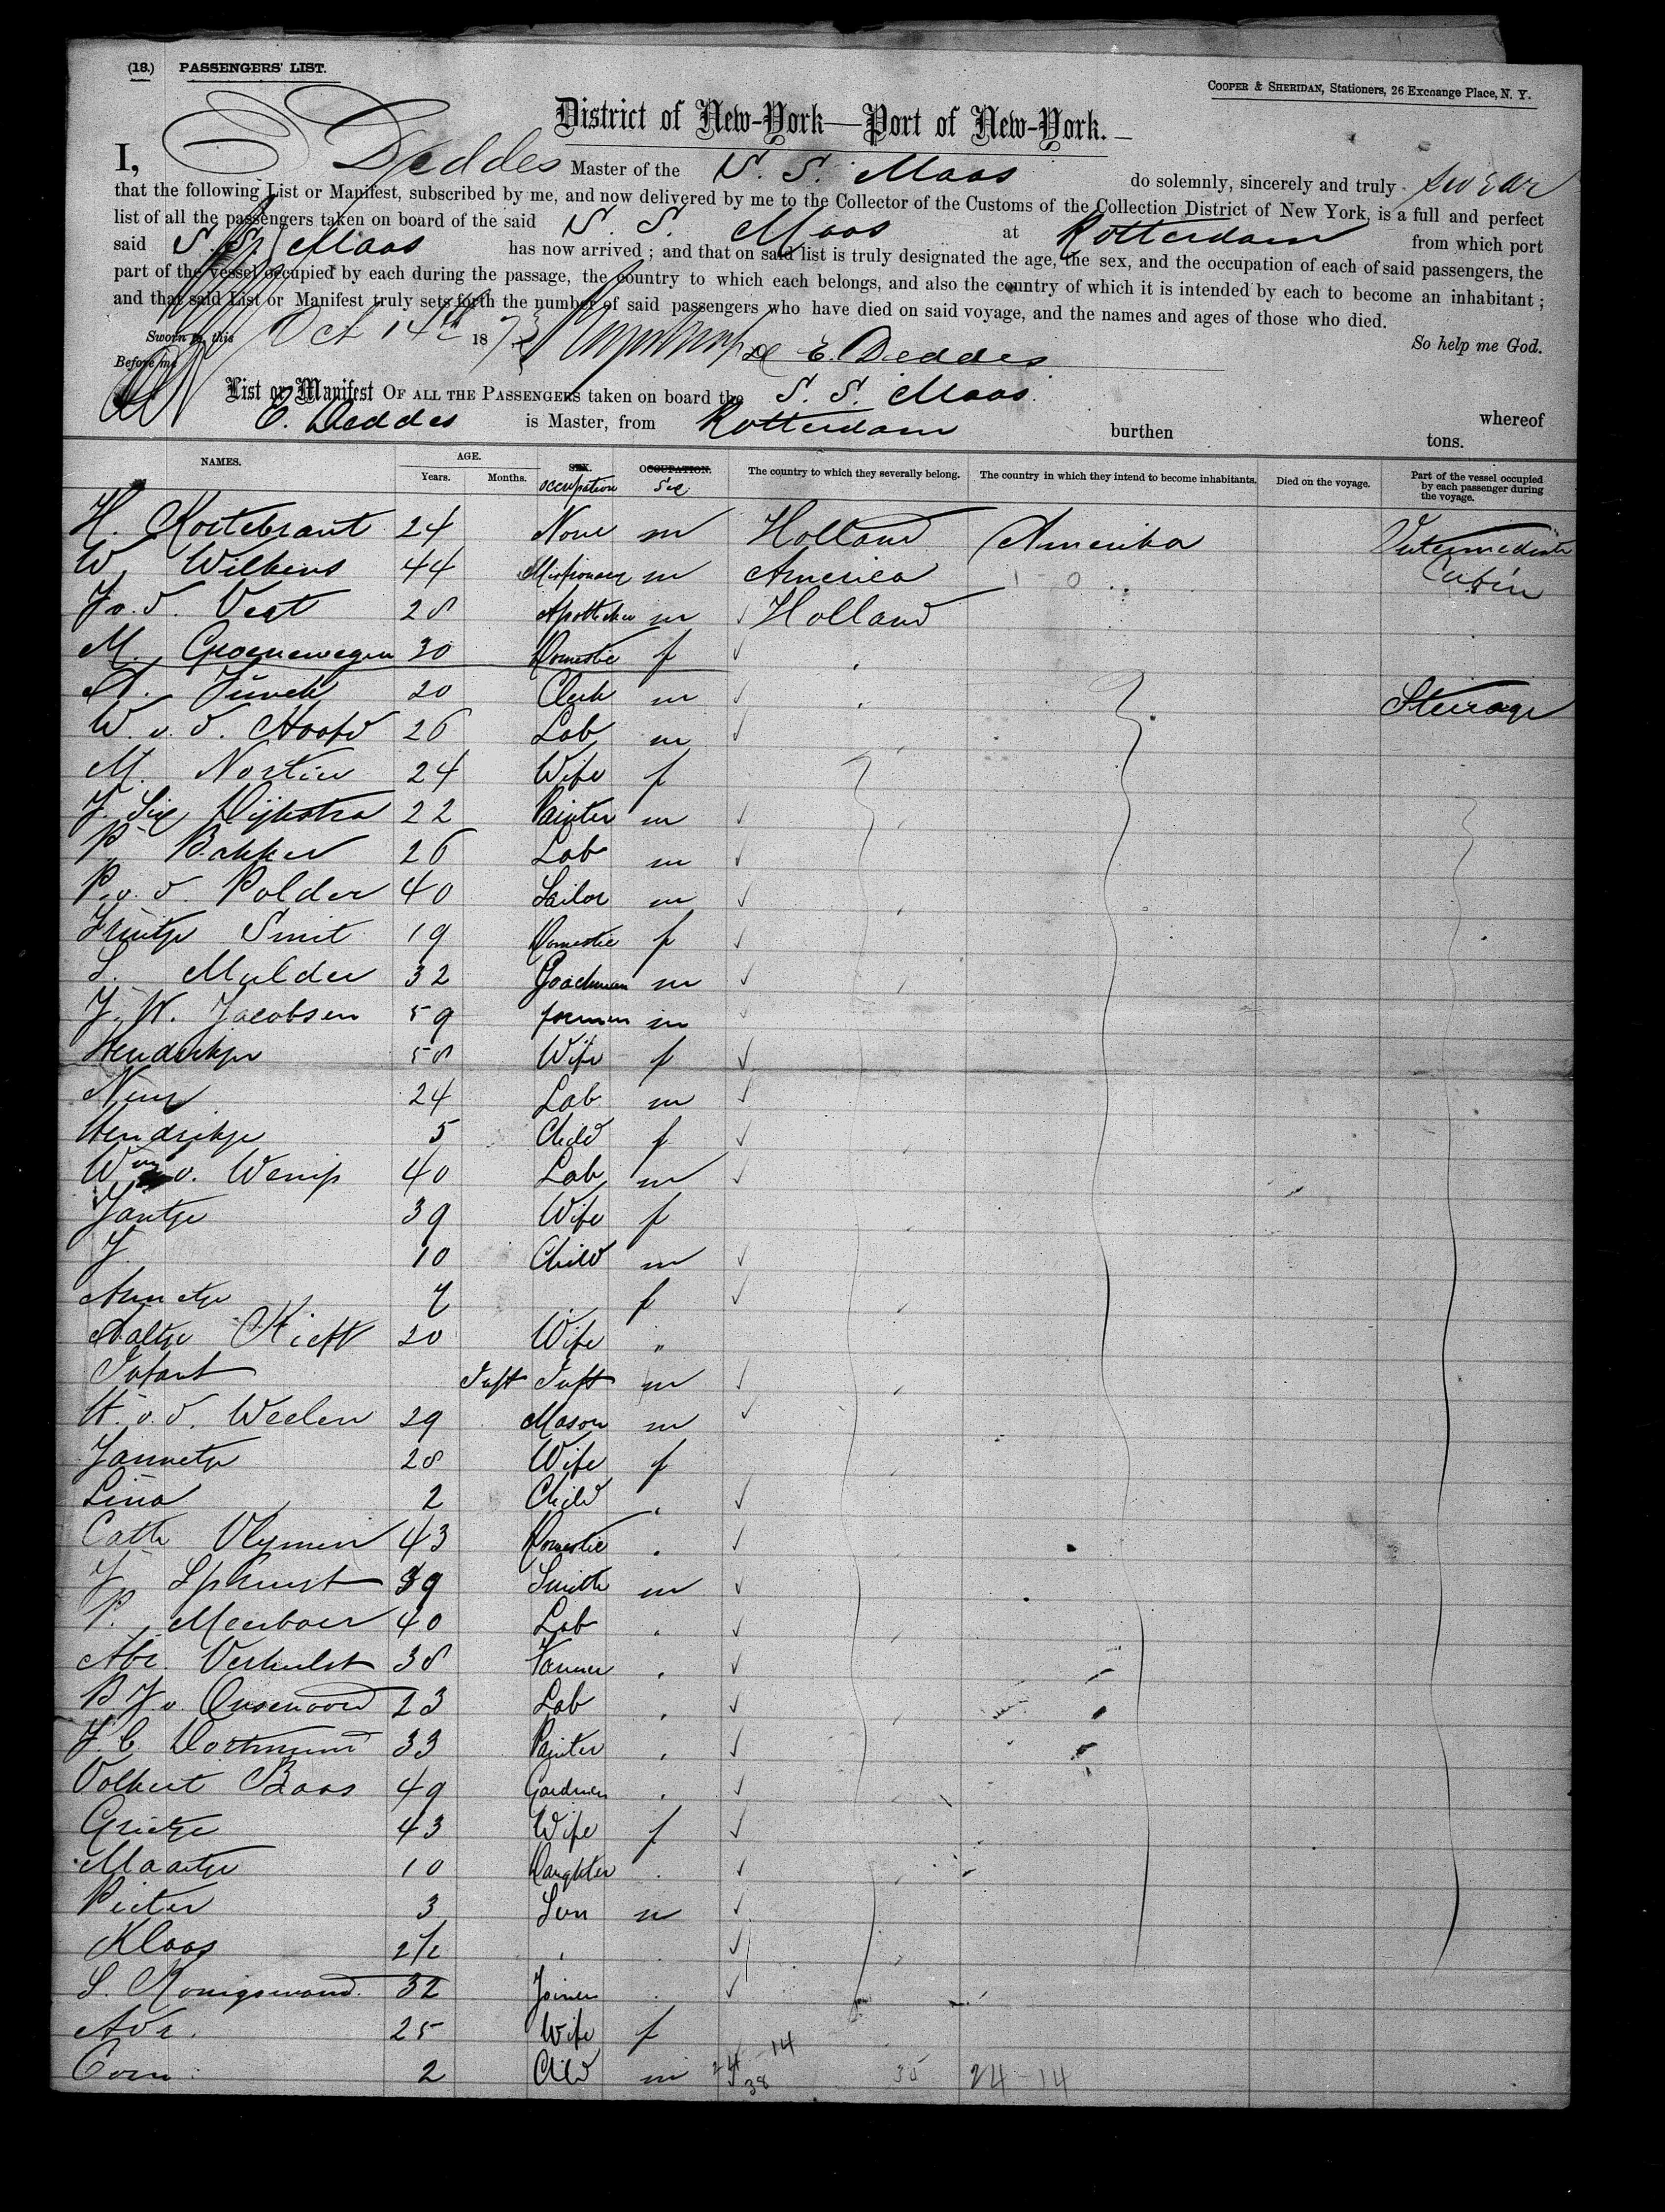 (18.) PASSENGERS' LIST.
COOPER & SHERIDAN, Stationers, 26 Exchange Place, N. Y.
District of New-York—Port of New-York.
I, E Deddes Master of the S. S. Maas do solemnly, sincerely and truly swear
that the following List or Manifest, subscribed by me, and now delivered by me to the Collector of the Customs of the Collection District of New York, is a full and perfect
list of all the passengers taken on board of the said S. S. Maas at Rotterdam from which port
said S. S. Maas has now arrived ; and that on said list is truly designated the age, the sex, and the occupation of each of said passengers, the
part of the vessel occupied by each during the passage, the country to which each belongs, and also the country of which it is intended by each to become an inhabitant ;
and that said List or Manifest truly sets forth the number of said passengers who have died on said voyage, and the names and ages of those who died.
Sworn to this Oct 14th 1873 So help me God.
Before me E. Deddes
List or Manifest OF ALL THE PASSENGERS taken on board the S. S. Maas whereof
E. Deddes is Master, from Rotterdam burthen tons.
NAMES. AGE. Years. Months. SEX. Occupation OCCUPATION. Sex The country to which they severally belong. The country in which they intend to become inhabitants. Died on the voyage. Part of the vessel occupied by each passenger during the voyage.
H. Kortebrant 24 None m Holland Amerika Intermediate
W. Wilkens 44 Missionary m America Cabin
28 m Holland
M. Groenewegen 30 Domestic f
20 Clerk m Steerage
W. v. d. Hoofd 26 Lab m
M. 24 Wife f
J. Dijkstra 22 Painter m
P. Bakker 26 Lab m
P. v. d. Polder 40 Sailor m
Smit 19 Domestic f
L. Mulder 32 Coachman m
J. W. Jacobsen 59 m
Hendrikje 58 Wife f
24 Lab m
Hendrikje 5 Child f
Wm v. 40 Lab m
Jantje 39 Wife f
J 10 Child m
Annetje 7 f
Aaltje Kieft 20 Wife "
Infant Inft Inft m
H. v. d. Weelen 29 Mason m
Jannetje 28 Wife f
Lina 2 Child
Cath 43 Domestic
J 39 Smith m
P. Meerboer 40 Lab
Abr. Verhulst 38 Farmer
P J v. 23 Lab
J. C. Dortmund 33 Painter
Volkert Baas 49 Gardner
Grietje 43 Wife f
Maartje 10 Daughter
Pieter 3 Son m
Klaas 2 1/2
L. 32 Joiner
Adr. 25 Wife f
Corn. 2 Child m 24 - 14 38 24 - 14